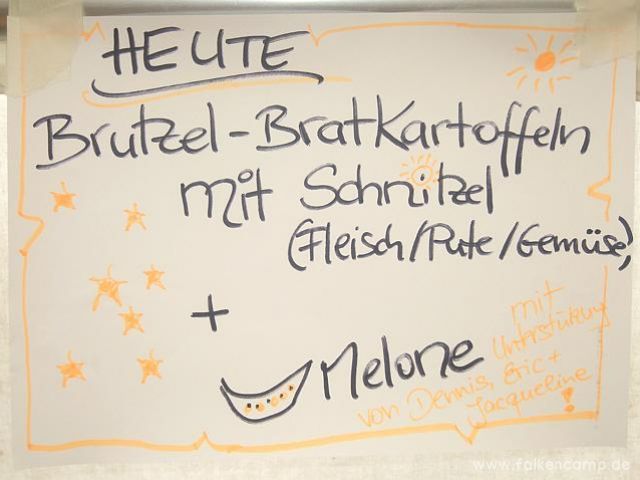 HEUTE
Brutzel-Bratkartoffeln
mit Schnitzel
(Fleisch/Pute/Gemüse)
+
Melone
mit
Unterstützung
von Dennis, Eric +
Jacqueline
!
www.falkencamp.de